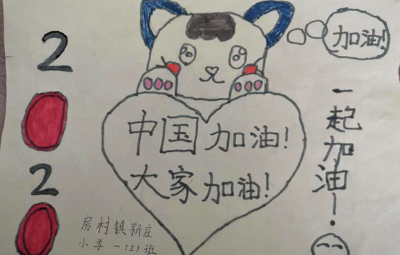 2020
加油!
中国加油!
大家加油!
一起加油!
房村镇新庄
小学一(2)班